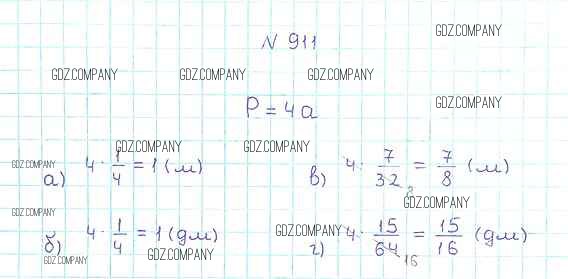 N 911
GDZ.COMPANY
GDZ.COMPANY GDZ.COMPANY GDZ.COMPANY
P = 4a
GDZ.COMPANY
GDZ.COMPANY GDZ.COMPANY
GDZ.COMPANY
а) 4 · 1/4 = 1 (м)
в) 4 · 7/32 8 = 7/8 (м)
GDZ.COMPANY
GDZ.COMPANY
б) 4 · 1/4 = 1 (дм)
GDZ.COMPANY
GDZ.COMPANY
г) 4 · 15/64 16 = 15/16 (дм)
GDZ.COMPANY